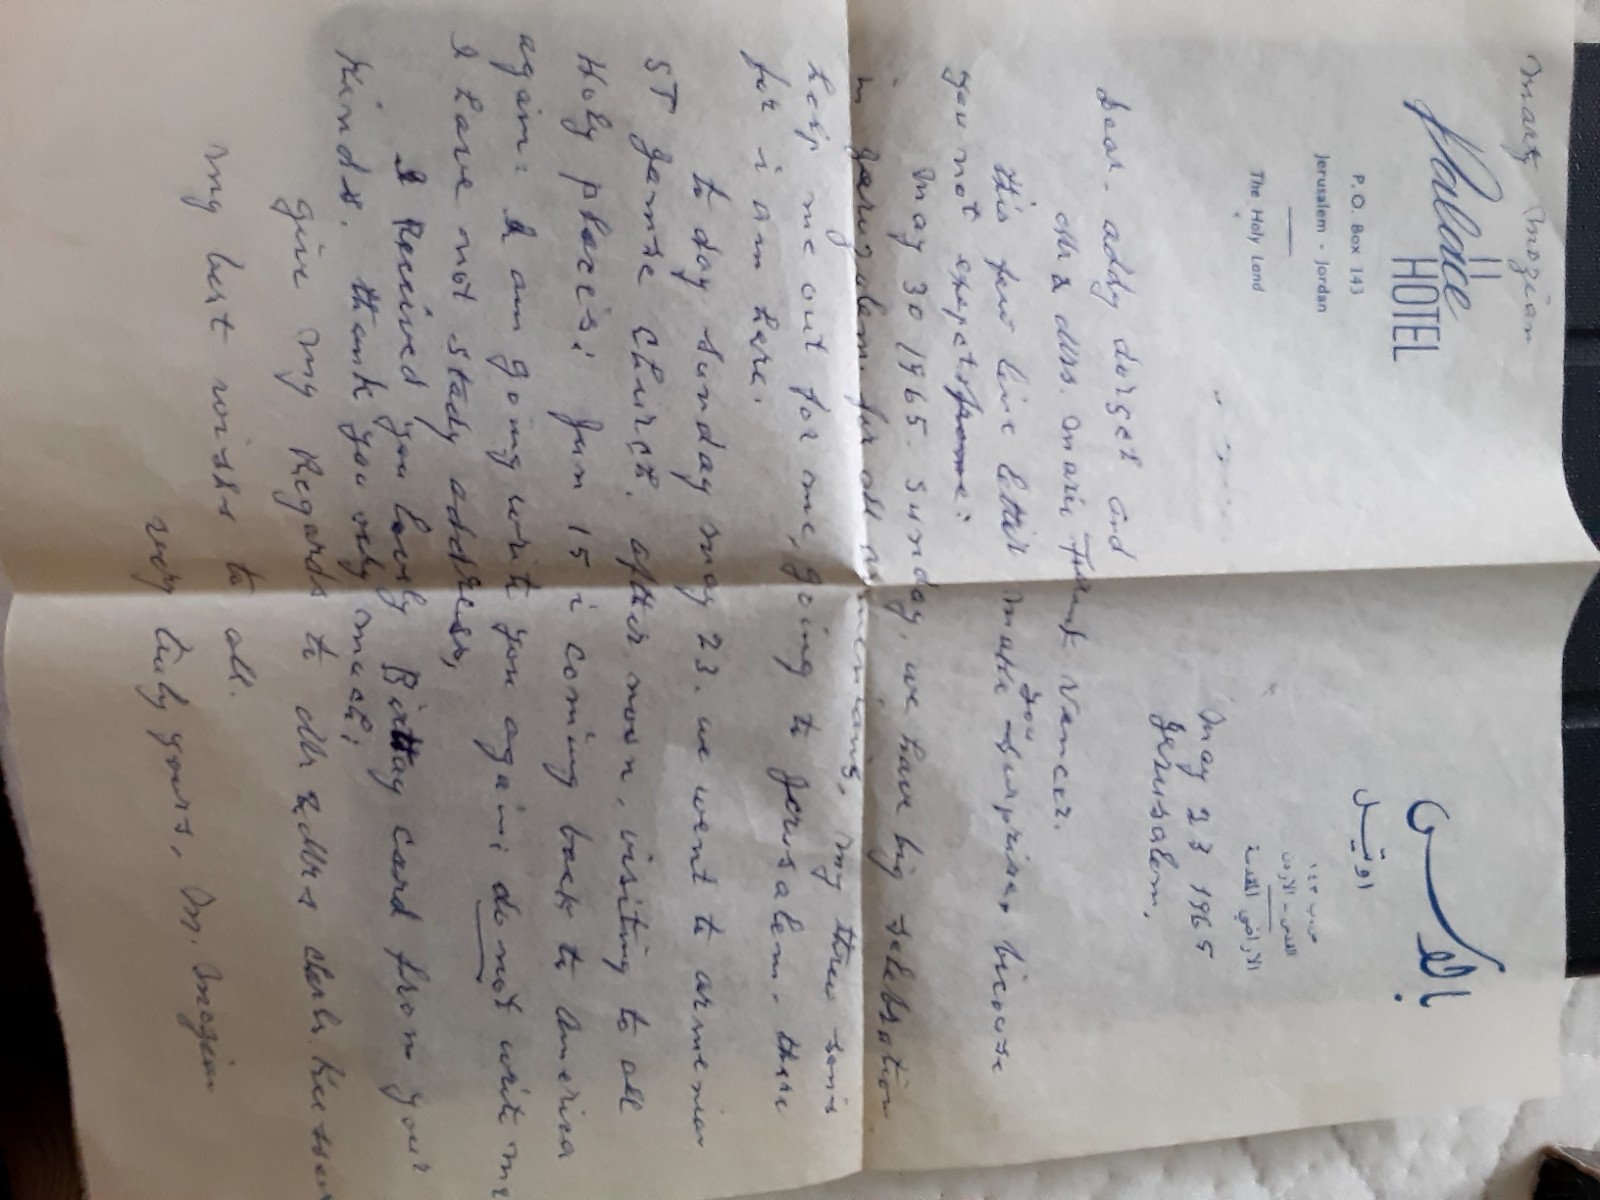 Marty Mozian
Palace
HOTEL
P.O. Box 143
Jerusalem - Jordan
The Holy Land
اوتيل
ص.ب ١٤٣
القدس - الاردن
الاراضي المقدسة
May 23 1965
Jerusalem,
Dear. addy dorset and
Mr & Mrs. Marin Vencer.
this few line letter make you surprise, bicouse
you not expect
May 30 1965. Sunday. we have big selebration
in Jerusalem. for all armenians, my three sons
help me out for me, going to Jerusalem. there
for i am here.
to day Sunday may 23. we went to armenian
ST Jamse Church. after noon, visiting to all
Holy places: Jun 15 i coming back to America
again: I am going writ you again: do not write me
I have not stady address,
I Received you lovely card from your
Kinds. thank you very much;
give my Regards to Mr & Mrs
my best wishs to all.
very truly yours, M. Mozian